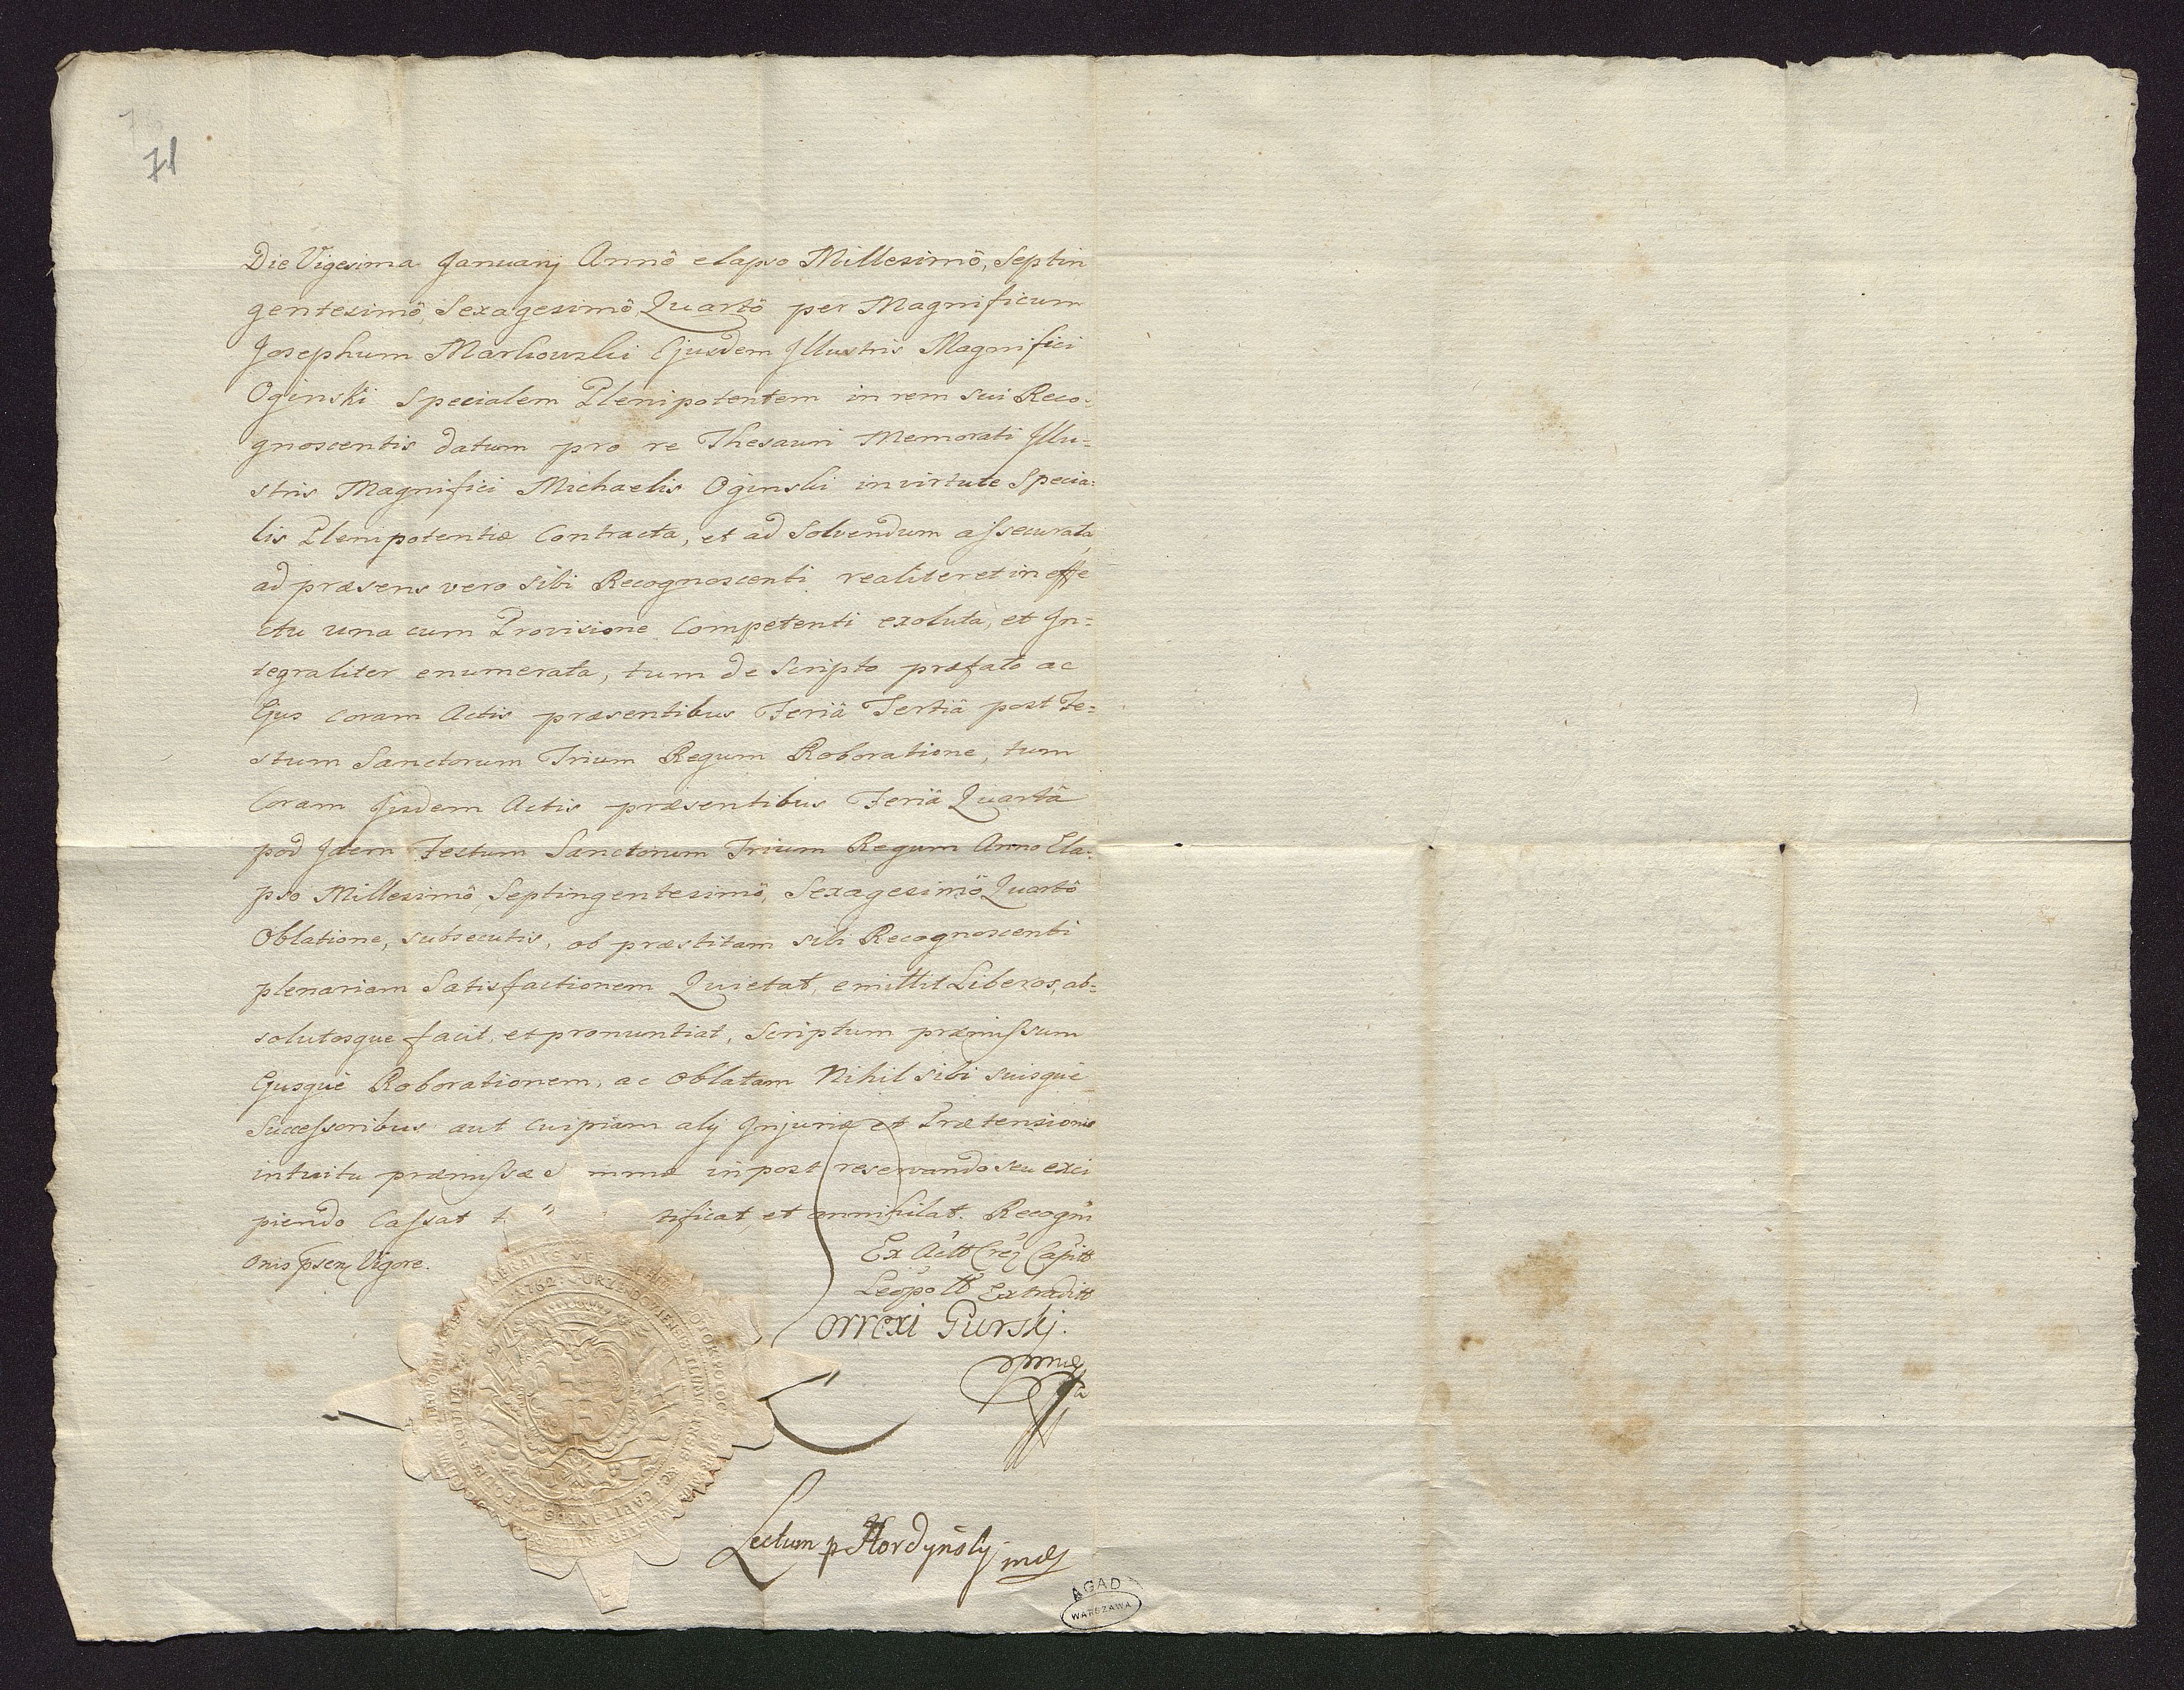 71
Die Vigesima Januarij Annô elapso Millesimô, Septin
gentesimô, Sexagesimô, Quartô per Magnificum
Josephum Markowski Ejusdem Jllustris Magnifici
Oginski Specialem Plenipotentem in rem sui Reco=
gnoscentis datum pro re Thesauri Memorati Jllu=
stris Magnifici Michaelis Oginski in virtute Specia=
lis Plenipotentiæ Contracta, et ad Solvendum assecurata,
ad præsens vero sibi Recognoscenti realiter et in effe
ctu una cum Provisione Competenti exoluta, et Jn=
tegraliter enumerata, tum de Scripto præfato ac
Ejus Coram Actis præsentibus Feriâ Tertiâ post Fe=
stum Sanctorum Trium Regum Roboratione, tum
Coram Jisdem Actis præsentibus Feriâ Quartâ
pod Jdem Festum Sanctorum Trium Regum Anno Ela=
pso Millesimô, Septingentesimô, Sexagesimô Quartô
Oblatione, subsecutis, ob præstitam sibi Recognoscenti
plenariam Satisfactionem Quietat, emittit Liberos, ab=
solutosque facit, et pronuntiat, Scriptum præmissum
Ejusquè Roborationem, ac Oblatam Nihil sibi suisquè
Successoribus aut cuipiam alij Jnjuriæ et Prætensionis
intuitu præmissæ in post reservando seu exci
piendo Cassat tificat, et annihilat. Recogni
onis psen Vigore.
Ex Actt Cren Capitt
Leopo tt Extraditt
Correxi Gurskj.
mp
Lectum p Hordyński mp
1762
AGAD
WARSZAWA